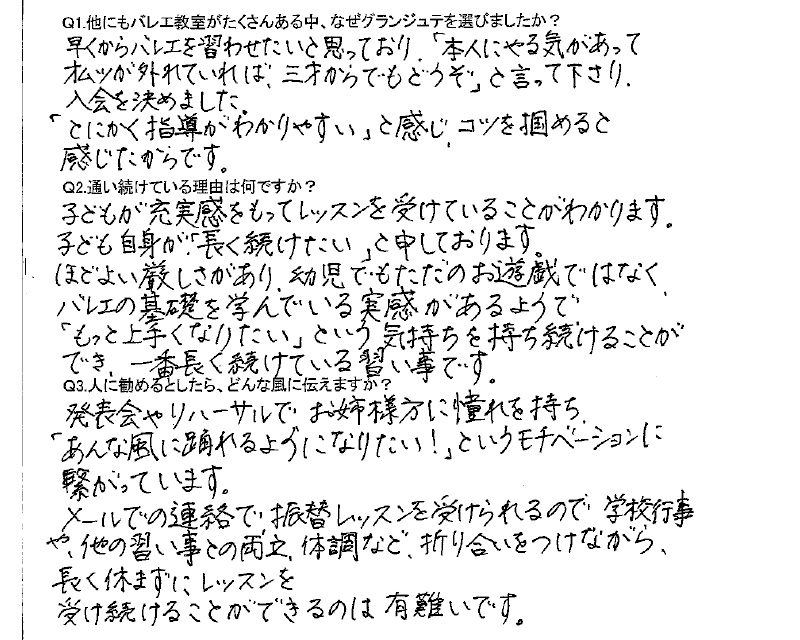 Q1.他にもバレエ教室がたくさんある中、なぜグランジュテを選びましたか？
早くからバレエを習わせたいと思っており、「本人にやる気があって
オムツが外れていれば、三才からでもどうぞ」と言って下さり、
入会を決めました。
「とにかく指導がわかりやすい」と感じ、コツを掴めると
感じたからです。
Q2.通い続けている理由は何ですか？
子どもが充実感をもってレッスンを受けていることがわかります。
子ども自身が、「長く続けたい」と申しております。
ほどよい厳しさがあり、幼児でもただのお遊戯ではなく、
バレエの基礎を学んでいる実感があるようで
「もっと上手くなりたい」という気持ちを持ち続けることが
でき、一番長く続けている習い事です。
Q3.人に勧めるとしたら、どんな風に伝えますか？
発表会やリハーサルで お姉様方に憧れを持ち、
「あんな風に踊れるようになりたい！」というモチベーションに
繋がっています。
メールでの連絡で、振替レッスンを受けられるので 学校行事
や、他の習い事との両立、体調など、折り合いをつけながら、
長く休まずにレッスンを
受け続けることができるのは 有難いです。